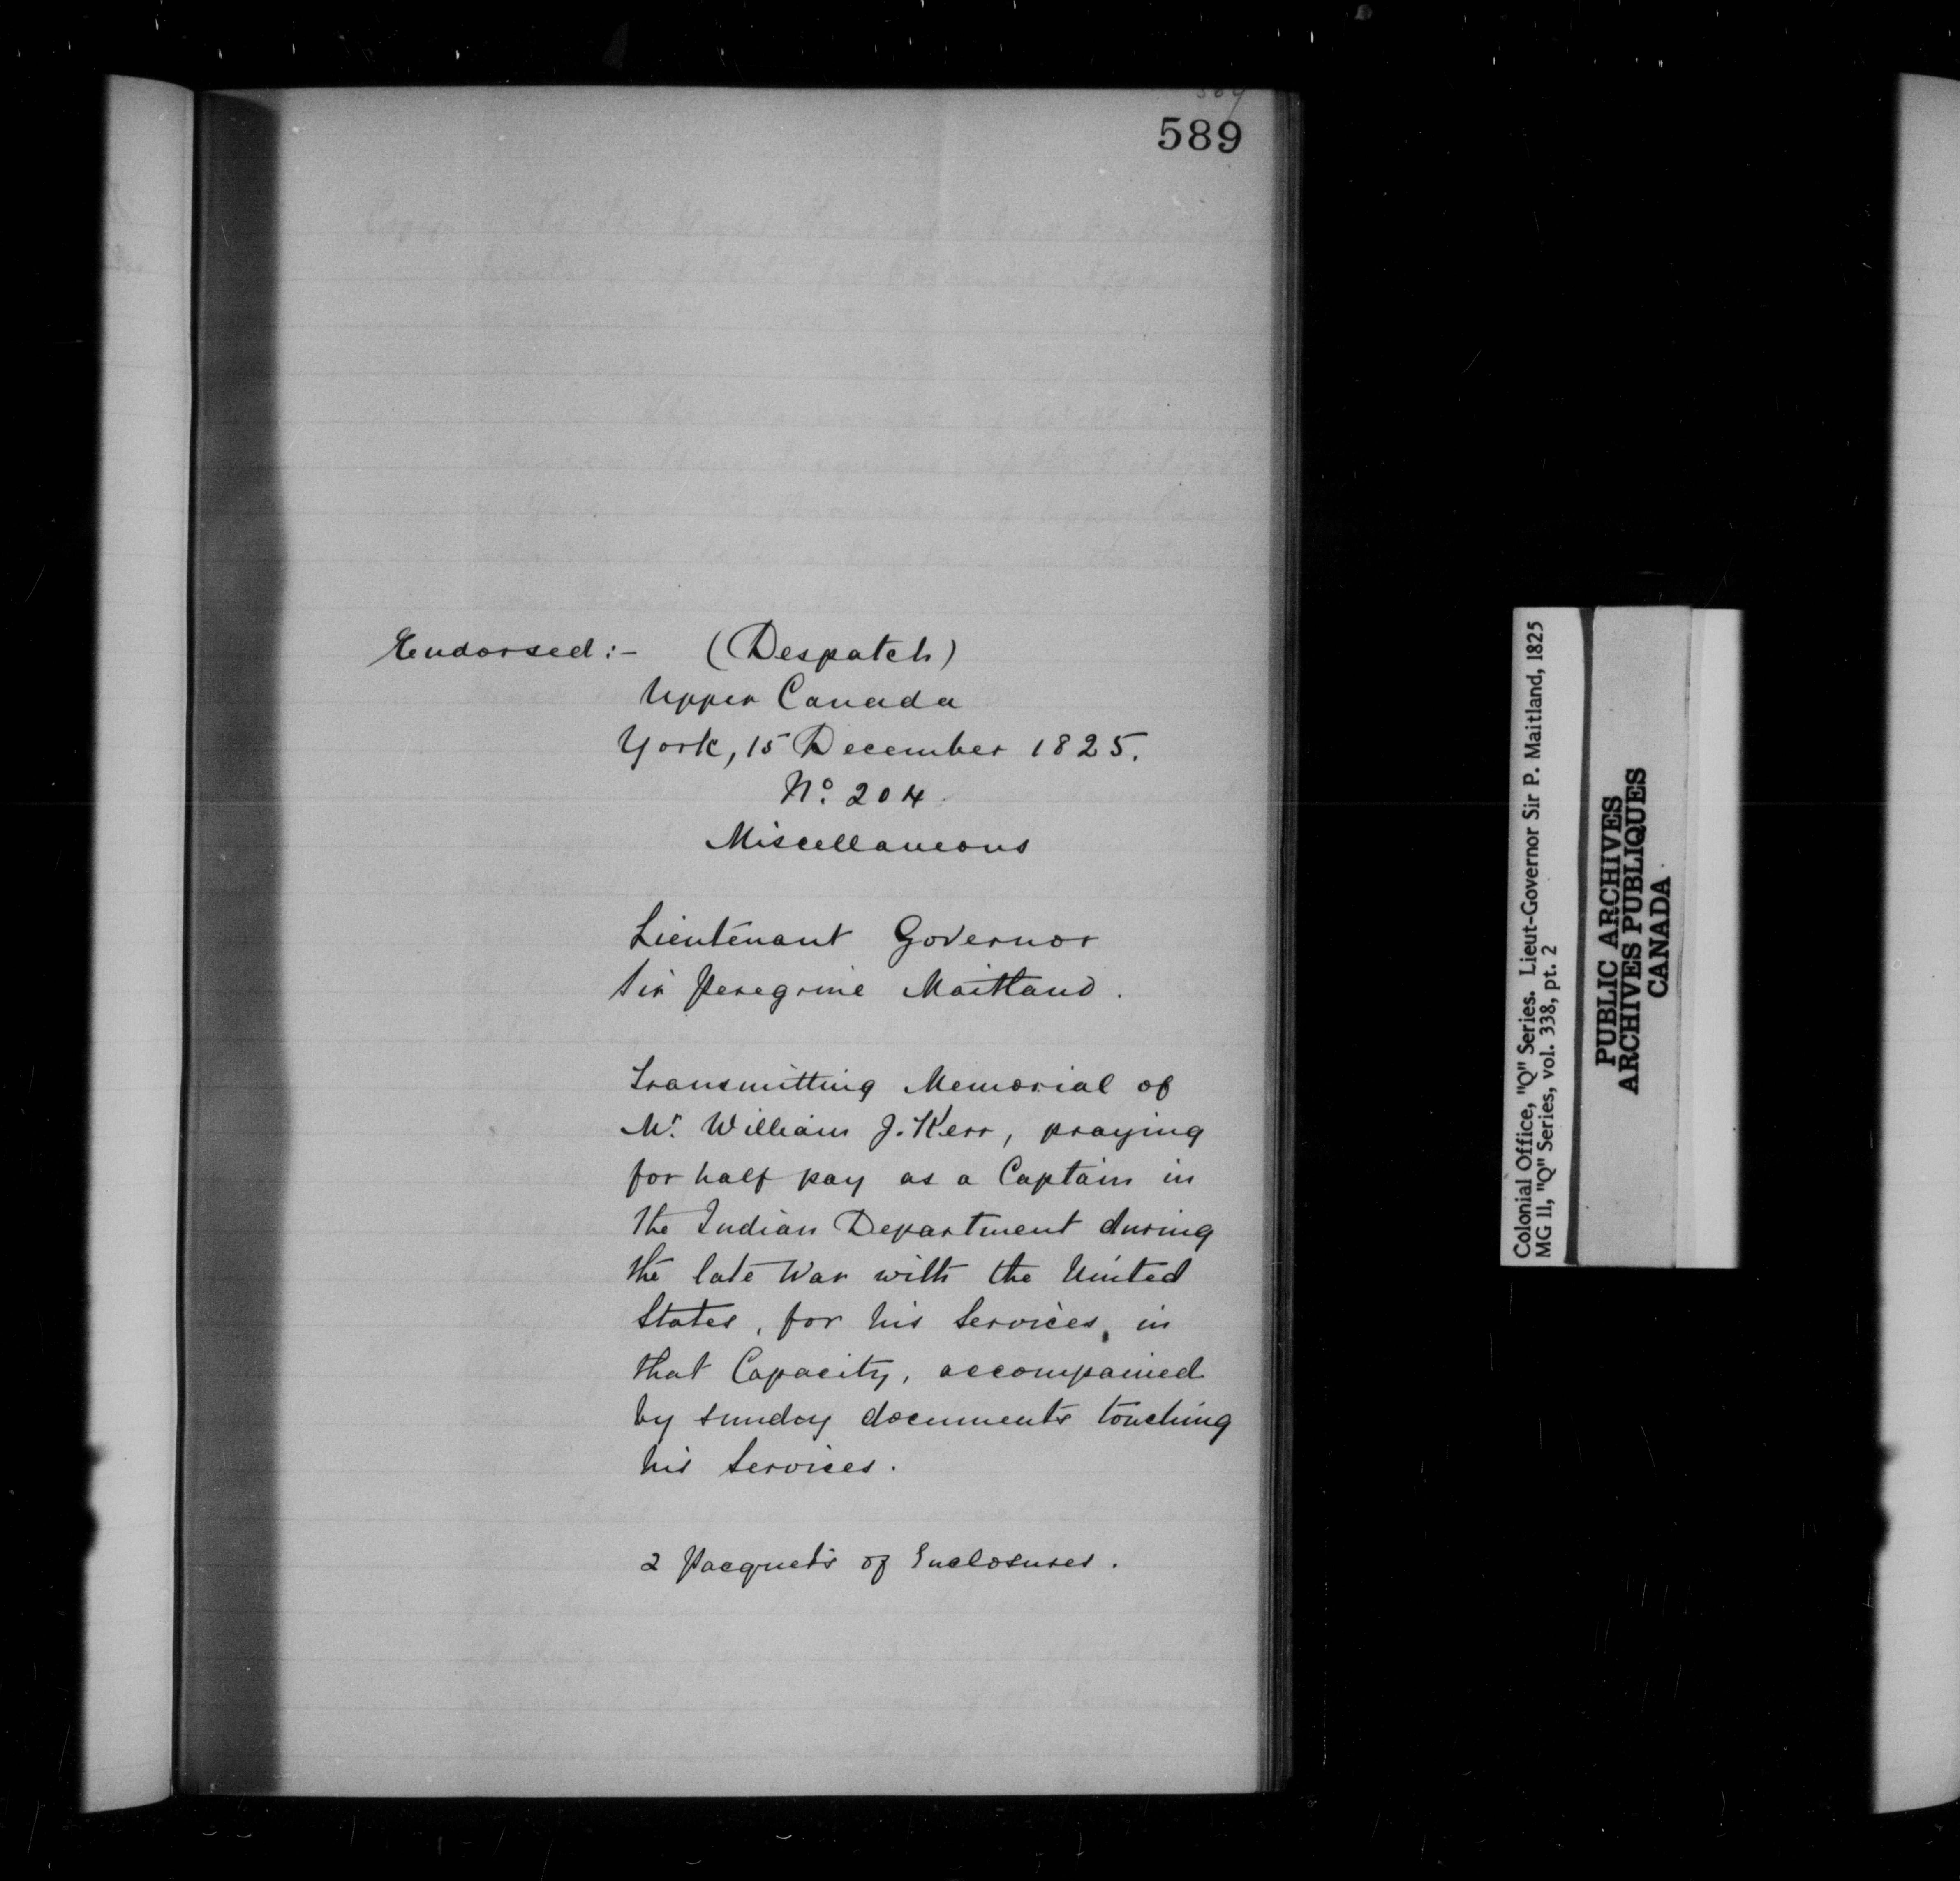 589
Endorsed:- (Despatch)
Upper Canada
York, 15 December 1825.
No. 204.
Miscellaneous
Lieutenant Governor
Sir Peregrine Maitland.
Transmitting Memorial of
Mr. William J. Kerr, praying
for half pay as a Captain in
the Indian Department during
the late War with the United
States, for his Services, in
that Capacity, accompained
by sundry documents touching
his Services.
2 Pacquets of Enclosures.
Colonial Office, "Q" Series. Lieut-Governor Sir P. Maitland, 1825
MG 11, "Q" Series, vol. 338, pt. 2
PUBLIC ARCHIVES
ARCHIVES PUBLIQUES
CANADA